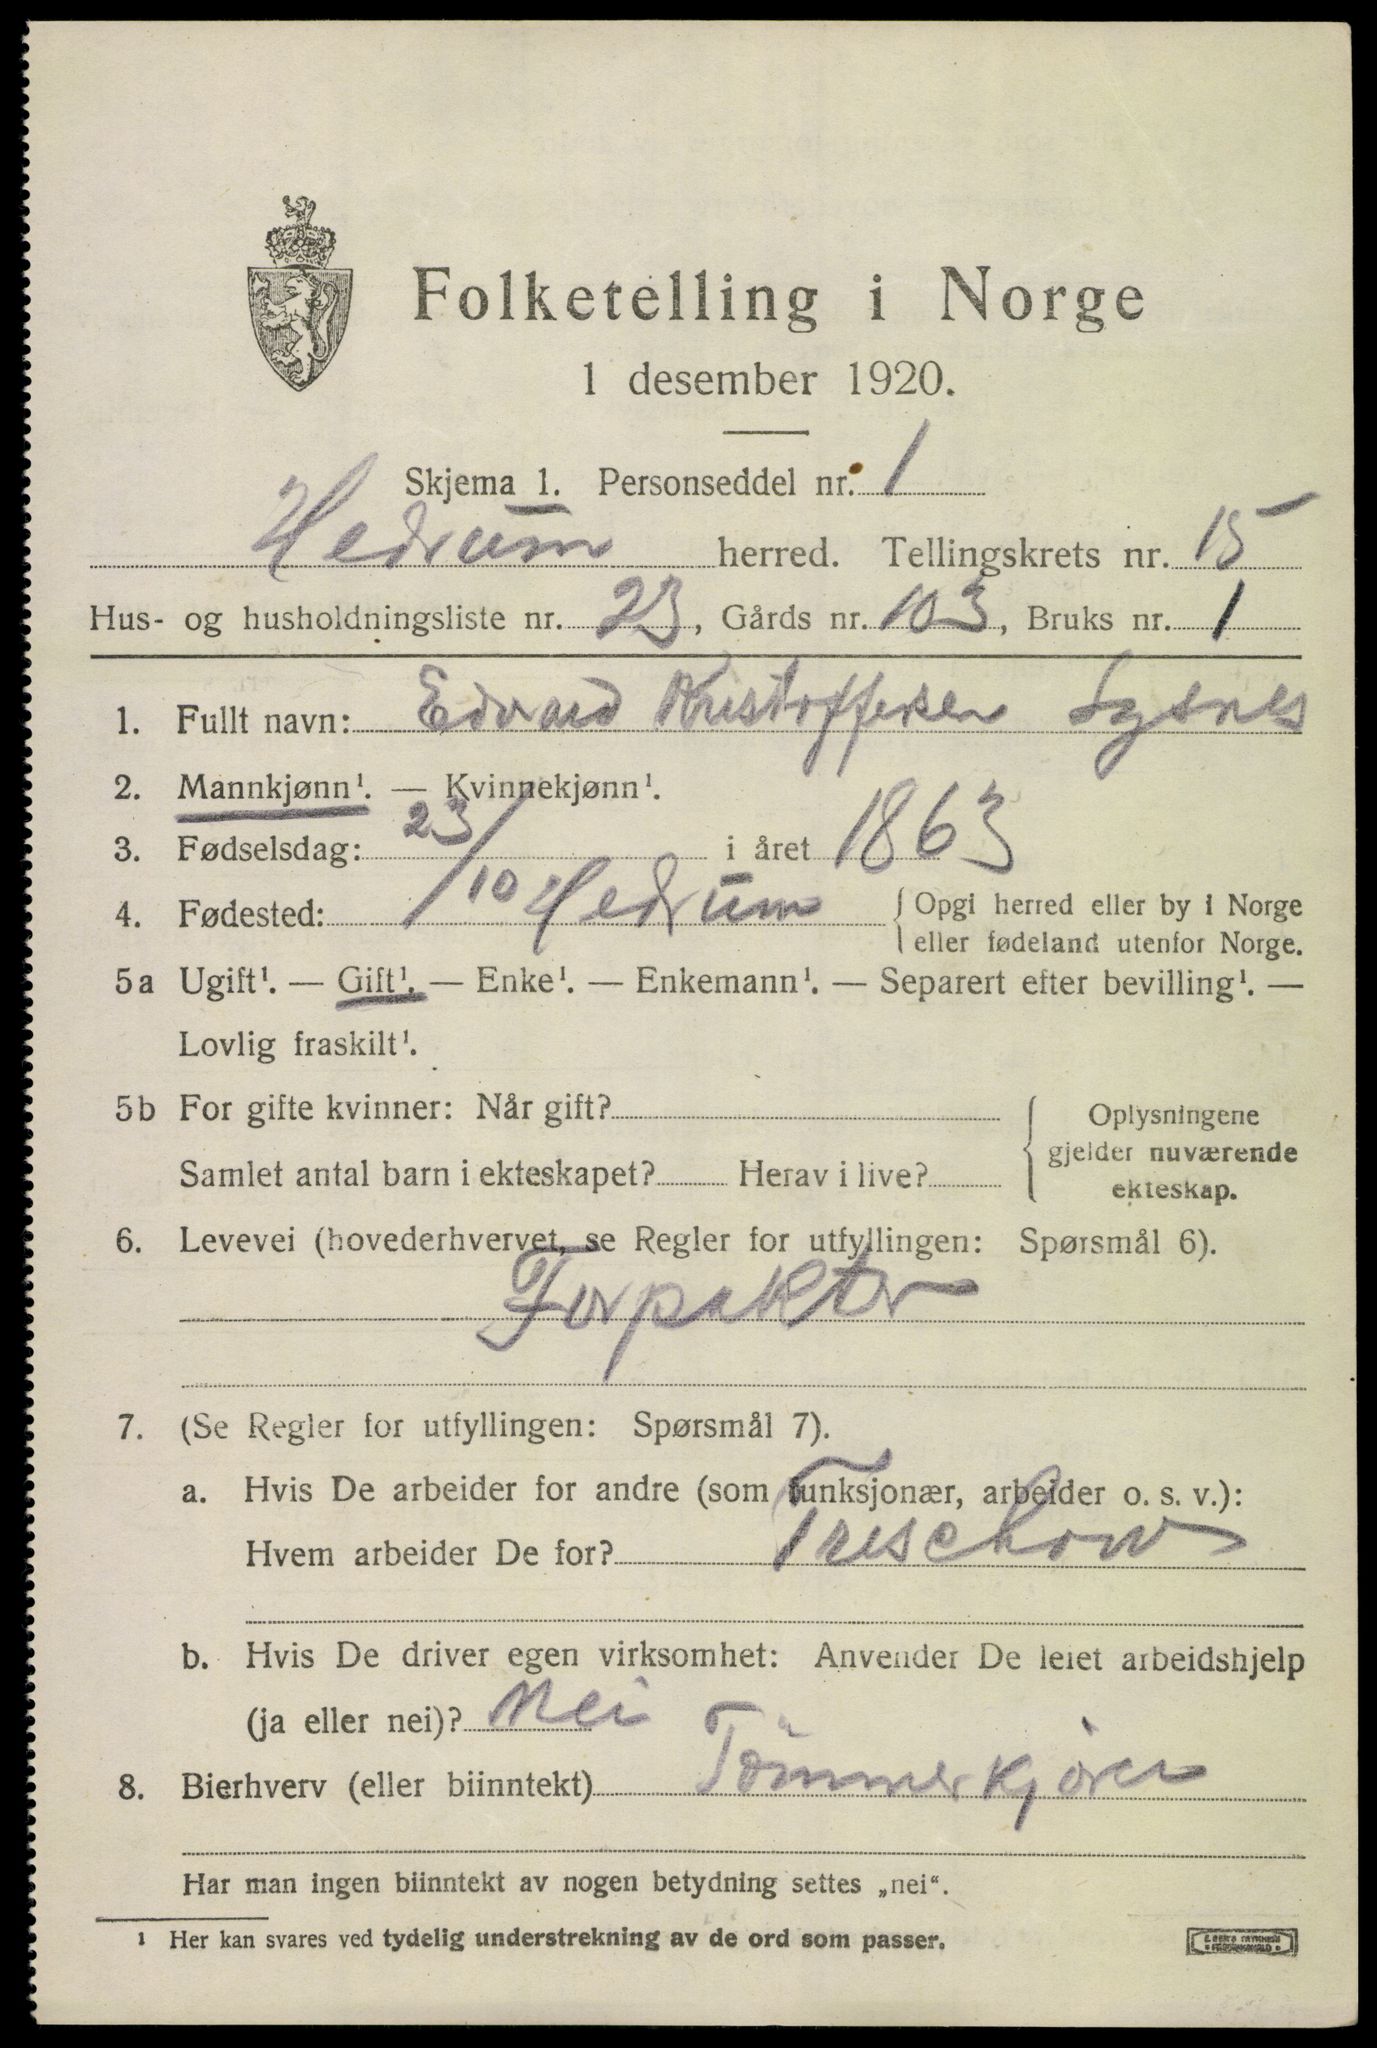 Folketelling i Norge
1 desember 1920.
Skjema 1. Personseddel nr. 1
Hedrum herred. Tellingskrets nr. 15
Hus- og husholdningsliste nr. 23, Gårds nr. 103, Bruks nr. 1
1. Fullt navn: Edvard Kristoffersen Lysnes
2. Mannkjønn¹. — Kvinnekjønn¹.
3. Fødselsdag: 23/10 i året 1863
4. Fødested: Hedrum { Opgi herred eller by i Norge
eller fødeland utenfor Norge.
5a Ugift¹. — Gift¹. — Enke¹. — Enkemann¹. — Separert efter bevilling¹. —
Lovlig fraskilt¹.
5b For gifte kvinner: Når gift? { Oplysningene
gjelder nuværende
Samlet antal barn i ekteskapet? Herav i live?
ekteskap.
6. Levevei (hovederhvervet, se Regler for utfyllingen: Spørsmål 6).
Forpakter
7. (Se Regler for utfyllingen: Spørsmål 7).
a. Hvis De arbeider for andre (som funksjonær, arbeider o. s. v.):
Hvem arbeider De for? Treschow
b. Hvis De driver egen virksomhet: Anvender De leiet arbeidshjelp
(ja eller nei)? Nei
8. Bierhverv (eller biinntekt) Tömmerkjörer
Har man ingen biinntekt av nogen betydning settes „nei“.
¹ Her kan svares ved tydelig understrekning av de ord som passer.